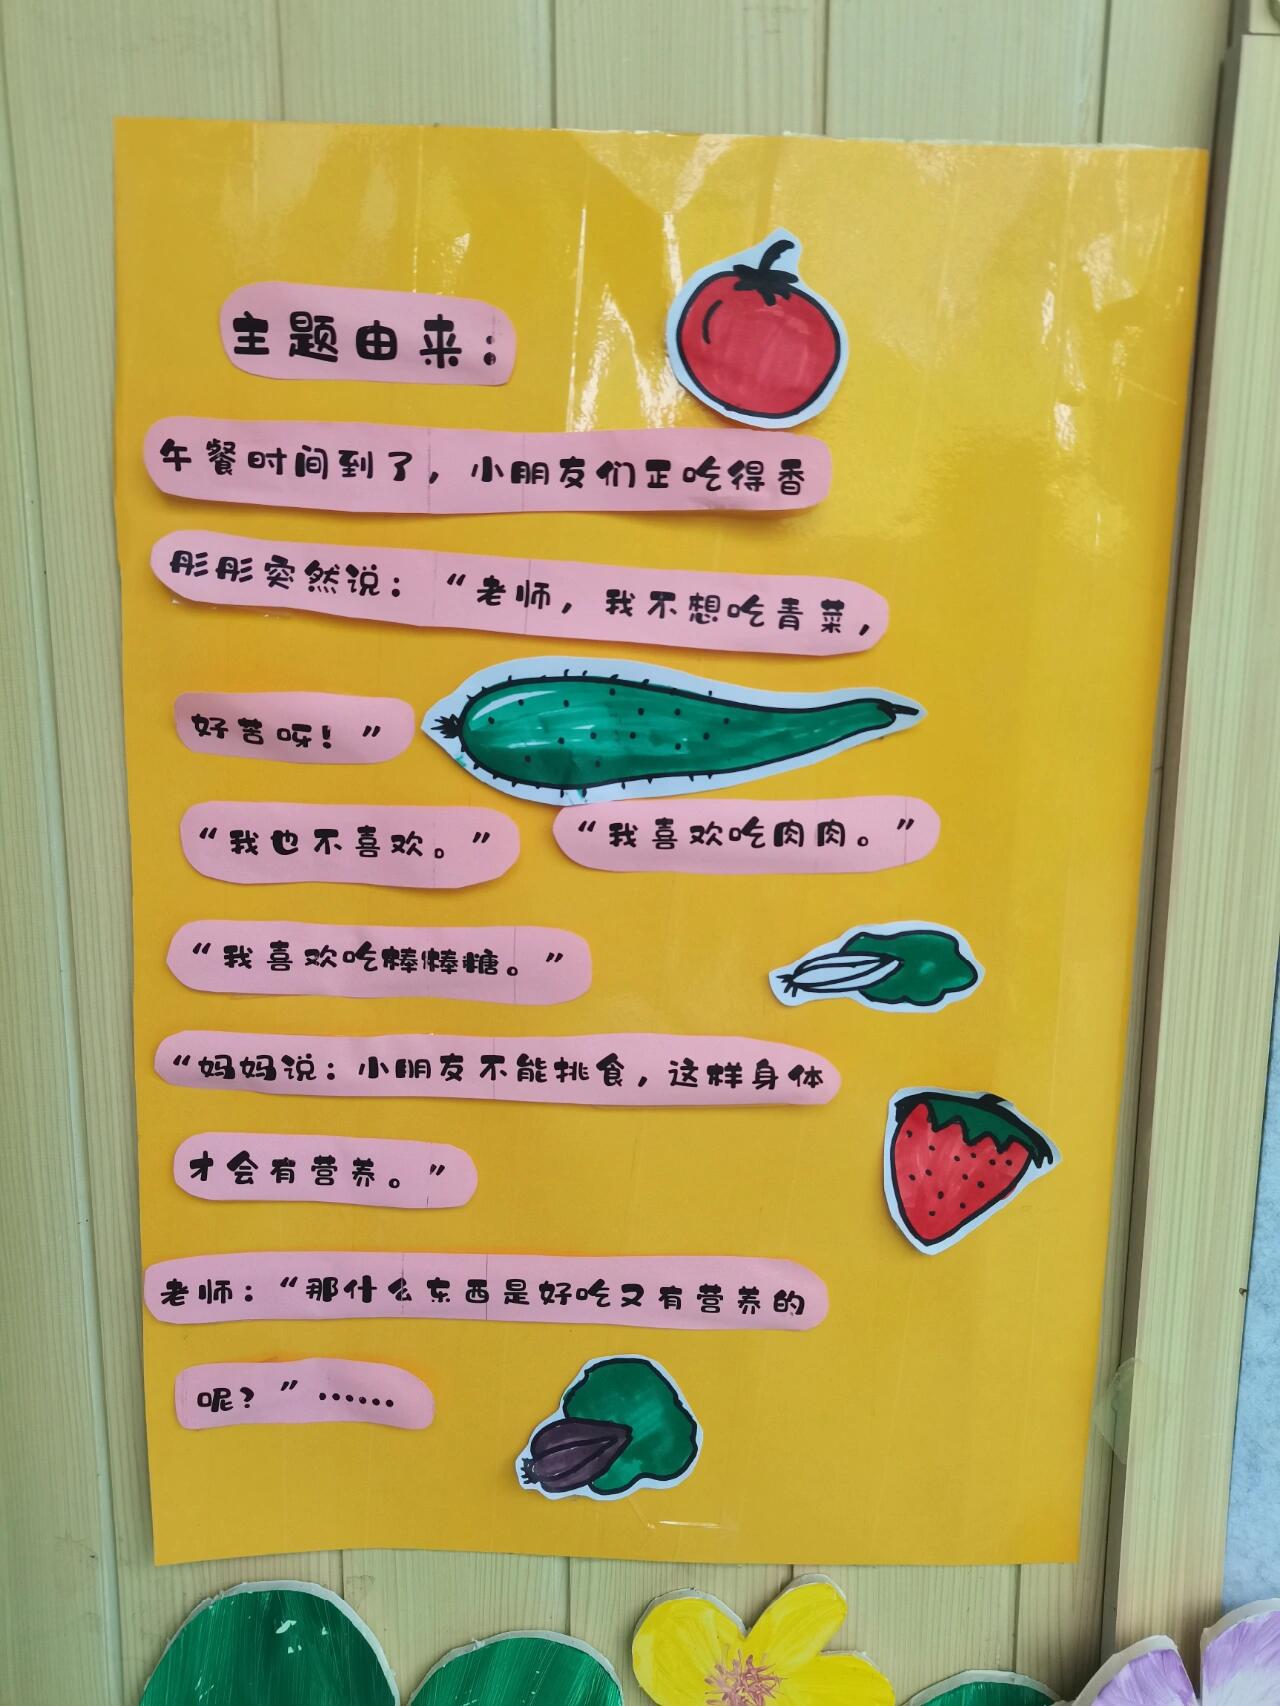 主题由来：
午餐时间到了，小朋友们正吃得香
彤彤突然说：“老师，我不想吃青菜，
好苦呀！”
“我也不喜欢。” “我喜欢吃肉肉。”
“我喜欢吃棒棒糖。”
“妈妈说：小朋友不能挑食，这样身体
才会有营养。”
老师：“那什么东西是好吃又有营养的
呢？”……